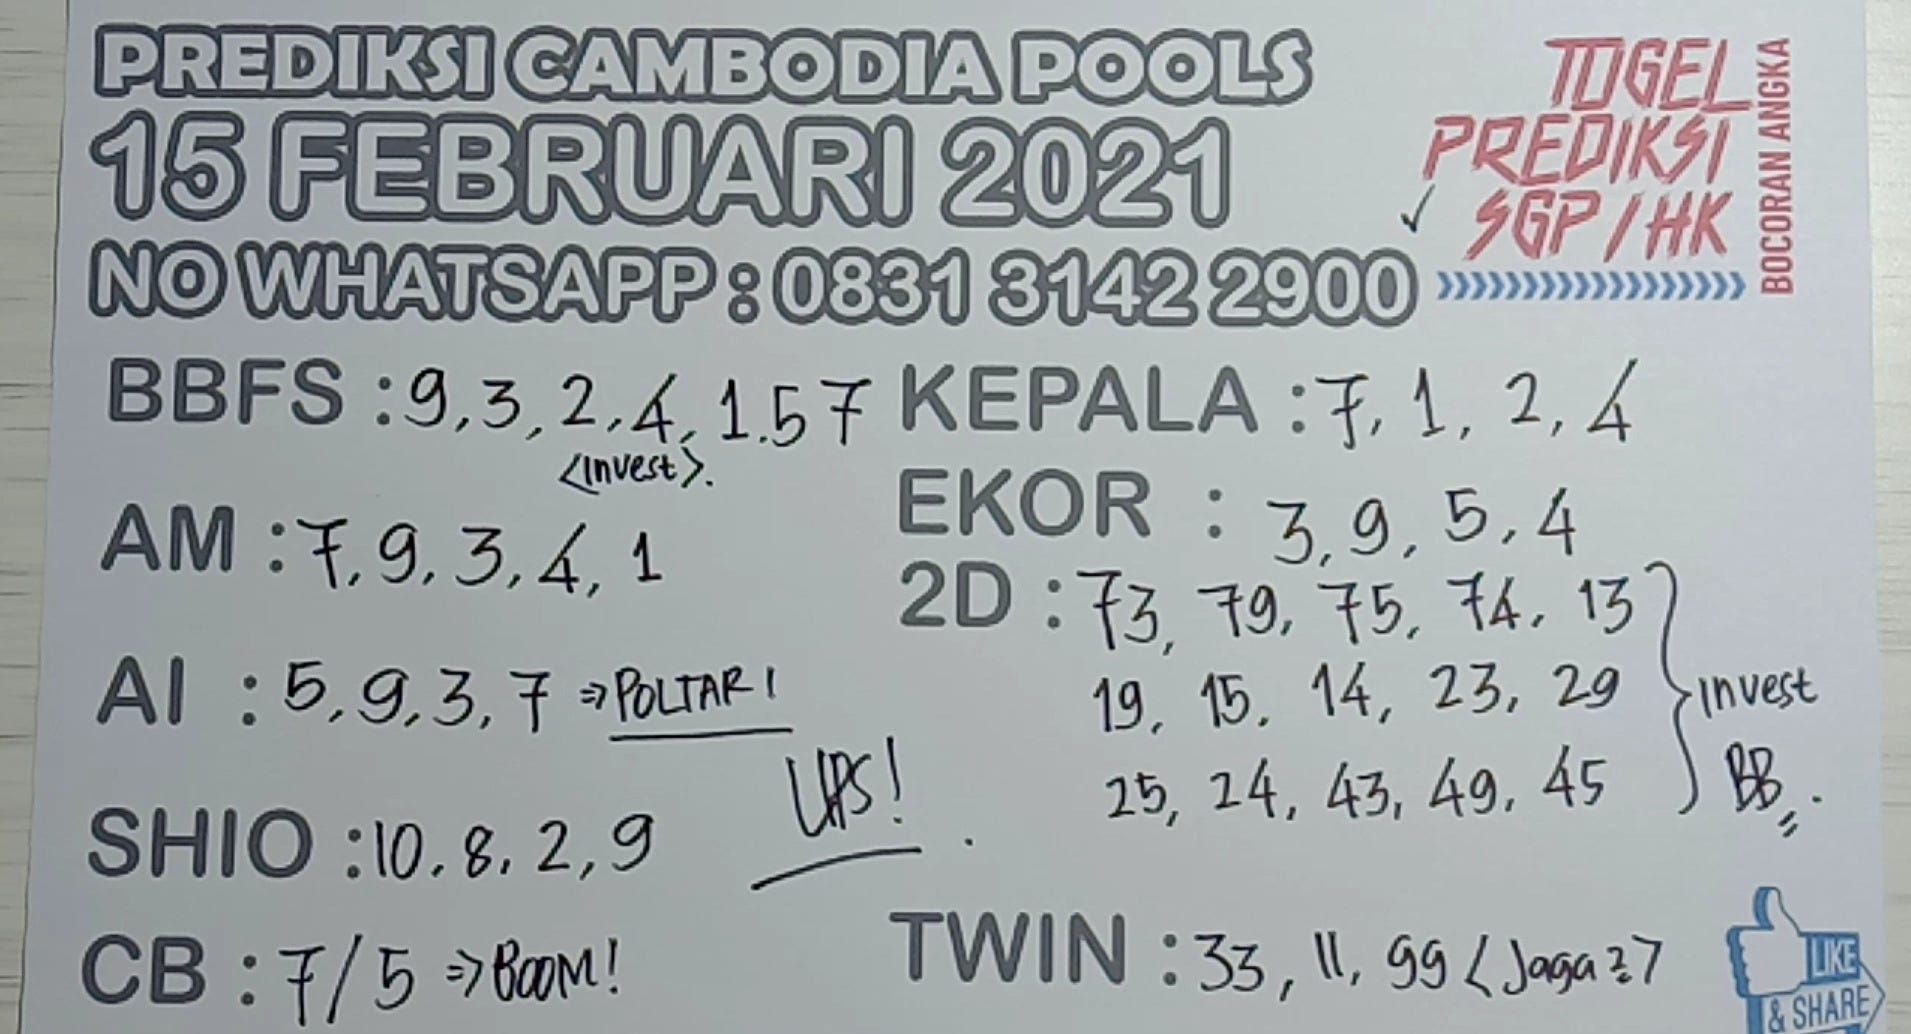 PREDIKSI CAMBODIA POOLS
15 FEBRUARI 2021
NO WHATSAPP : 0831 3142 2900
TOGEL
PREDIKSI
SGP / HK
BOCORAN ANGKA
BBFS : 9, 3, 2, 4, 1.5 7
<invest>.
AM : 7, 9, 3, 4, 1
AI : 5, 9, 3, 7 ⇒ POLTAR !
UPS!
SHIO : 10, 8, 2, 9
CB : 7/5 ⇒ BOOM!
KEPALA : 7, 1, 2, 4
EKOR : 3, 9, 5, 4
2D : 73, 79, 75, 74, 13
19, 15, 14, 23, 29
25, 24, 43, 49, 45
invest
BB
TWIN : 33, 11, 99 < Jaga2 >
LIKE
& SHARE